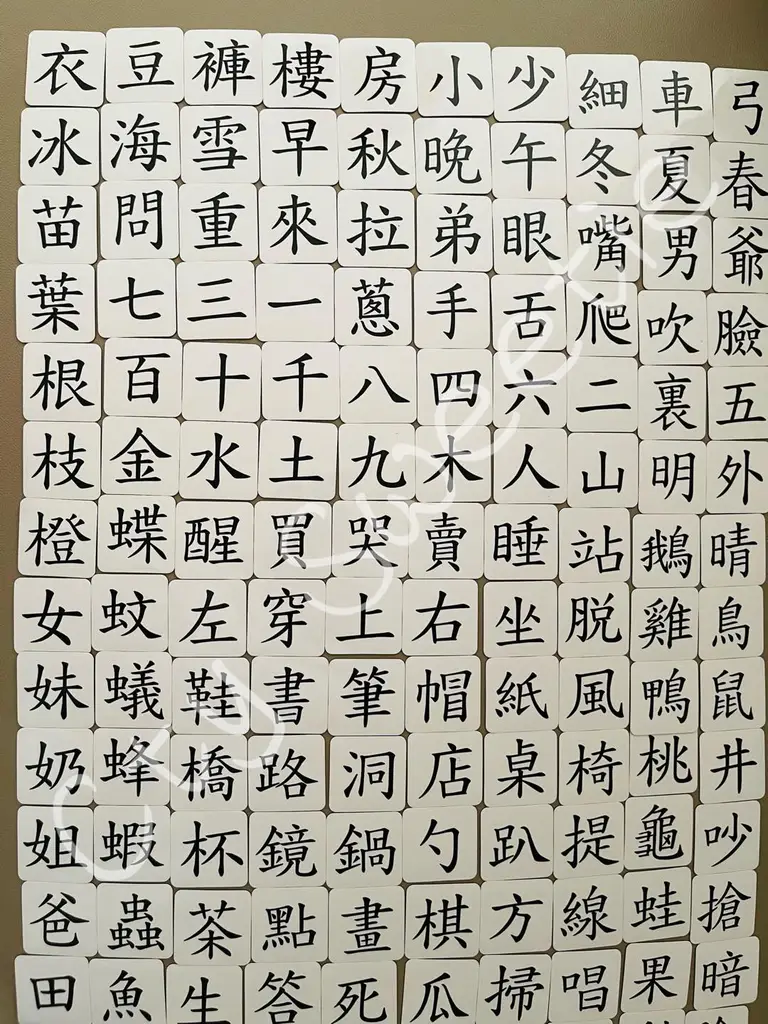 衣豆褲樓房小少細車弓
冰海雪早秋晚午冬夏春
苗問重來拉弟眼嘴男爺
葉七三一蔥手舌爬吹臉
根百十千八四六二裏五
枝金水土九木人山明外
橙蝶醒買哭賣睡站鵝晴
女蚊左穿上右坐脱雞鳥
妹蟻鞋書筆帽紙風鴨鼠
奶蜂橋路洞店桌椅桃井
姐蝦杯鏡鍋勺趴提龜吵
爸蟲茶點畫棋方線蛙搶
田魚生答死瓜掃唱果暗
Sweetie